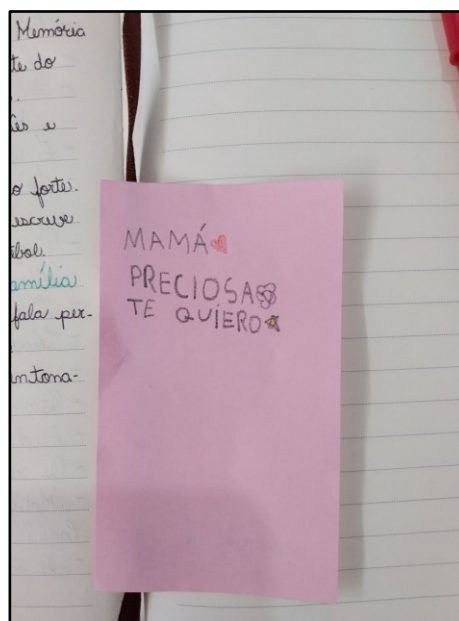 Memória
te do
ês e
o forte.
escreve
ibol.
amília
fala per-
intona-
MAMÁ
PRECIOSA
TE QUÍERO